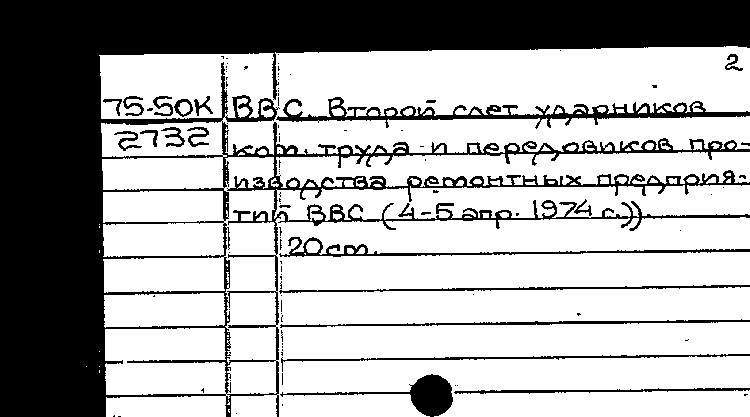 2
75-50К ВВС. Второй слет ударников
2732 ком. труда и передовиков про-
изводства ремонтных предприя-
тий ВВС (4-5 апр. 1974 г.)).
20 см.